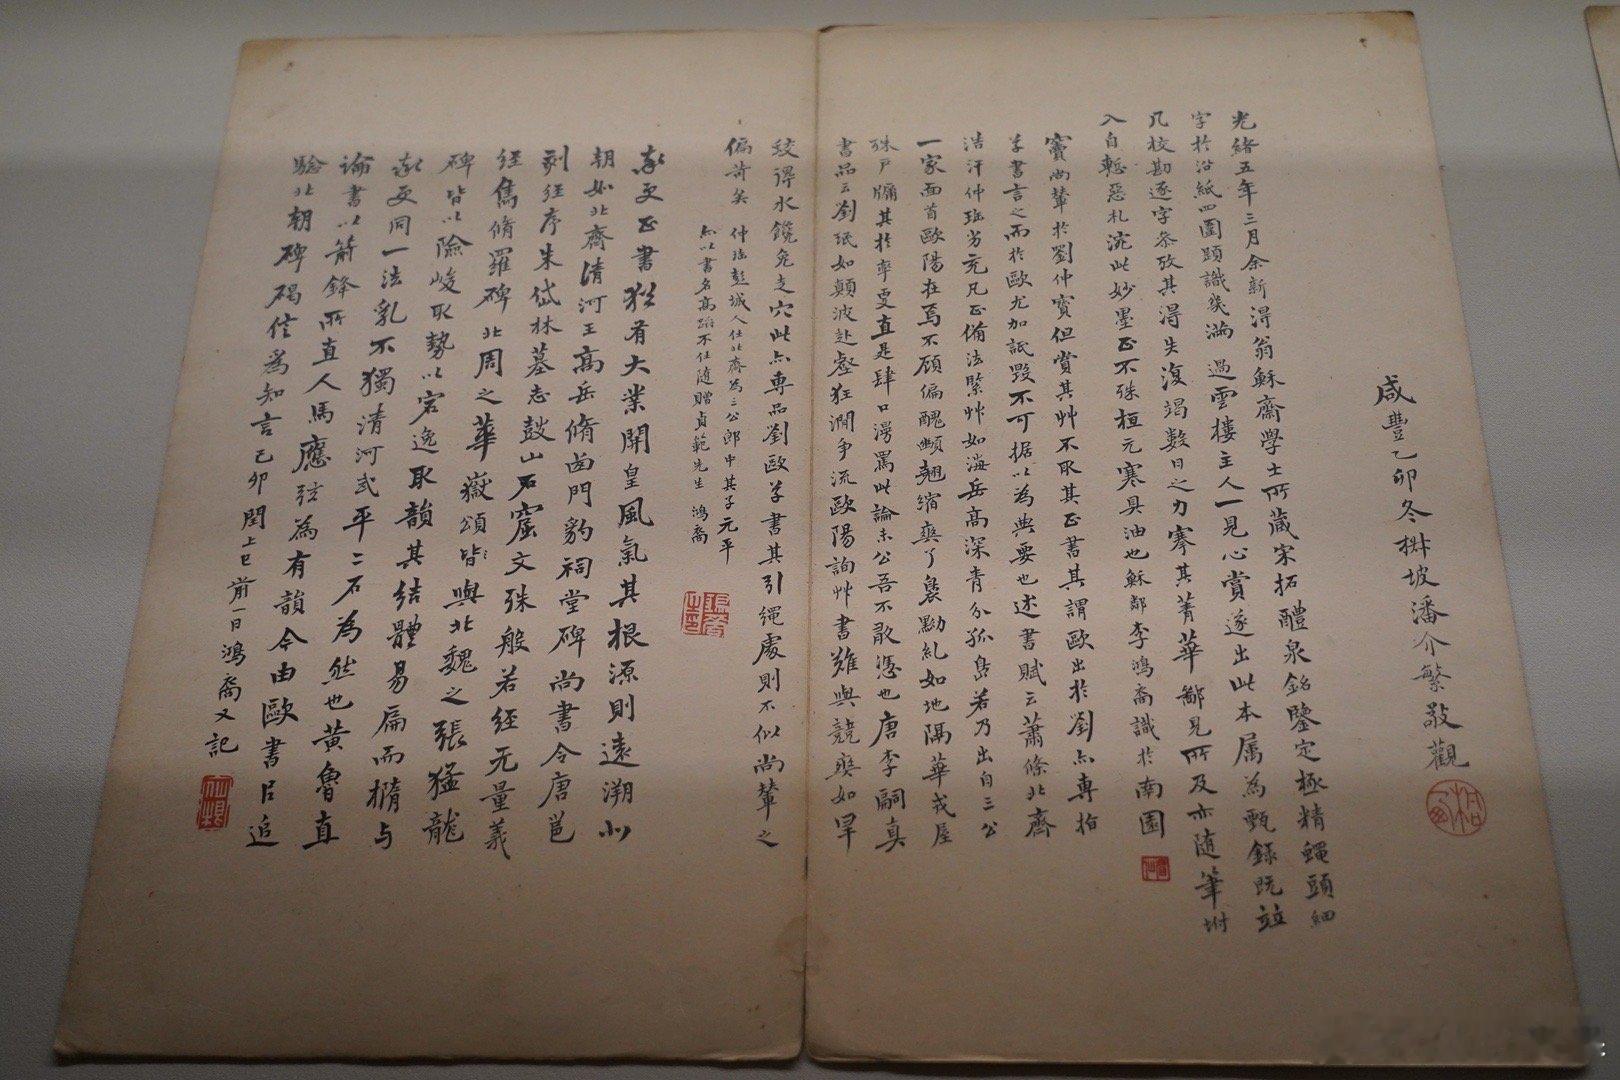 咸豐乙卯冬椒坡潘介繁敬觀
光緒五年三月余新得翁蘇齋學士所藏宋拓醴泉銘鑒定極精蠅頭細
字於沿紙四圍題識幾滿過雲樓主人一見心賞遂出此本属為甄錄既竝
几校勘逐字叅攷其得失復竭數日之力搴其菁華鄙見所及亦随筆坿
入自慙惡札涴此妙墨正不殊桓元寒具油也蘇鄰李鴻裔識於南園
竇尚輦於劉仲寶但賞其艸不取其正書其謂歐出於劉亦專指
草書言之而於歐尤加詆毀不可據以為典要也述書賦云蕭條北齊
浩汗仲瑶劣元凡正備法緊艸如海岳高深青分孤島若乃出自三公
一家面首歐陽在焉不顧偏醜顩翹縮爽了裊黝糺如地隔華戎屋
殊戶牖其於率更直是肆口謾罵此論未公吾不敢憑也唐李嗣真
書品云劉珉如顛波赴壑狂澗爭流歐陽詢艸書難與競爽如旱
蛟得水饞兔走穴此亦專品劉歐草書其引繩處則不似尚輦之
偏苛矣 仲瑶彭城人仕北齊為三公郎中其子元平
亦以書名高蹈不仕隨贈貞範先生 鴻裔
率更正書猶有大業開皇風氣其根源則遠溯北
朝如北齊清河王高岳脩西門豹祠堂碑尚書令唐邕
刻經序朱岱林墓志鼓山石窟文殊般若經无量義
經雋脩羅碑北周之華嶽頌皆與北魏之張猛龍
碑皆以險峻取勢以宕逸取韻其結體易扁而橢与
率更同一法乳不獨清河武平二石為然也黃魯直
論書以箭鋒所直人馬應弦為有韻今由歐書㠯追
驗北朝碑碣信為知言己卯閏上巳前一日鴻裔又記